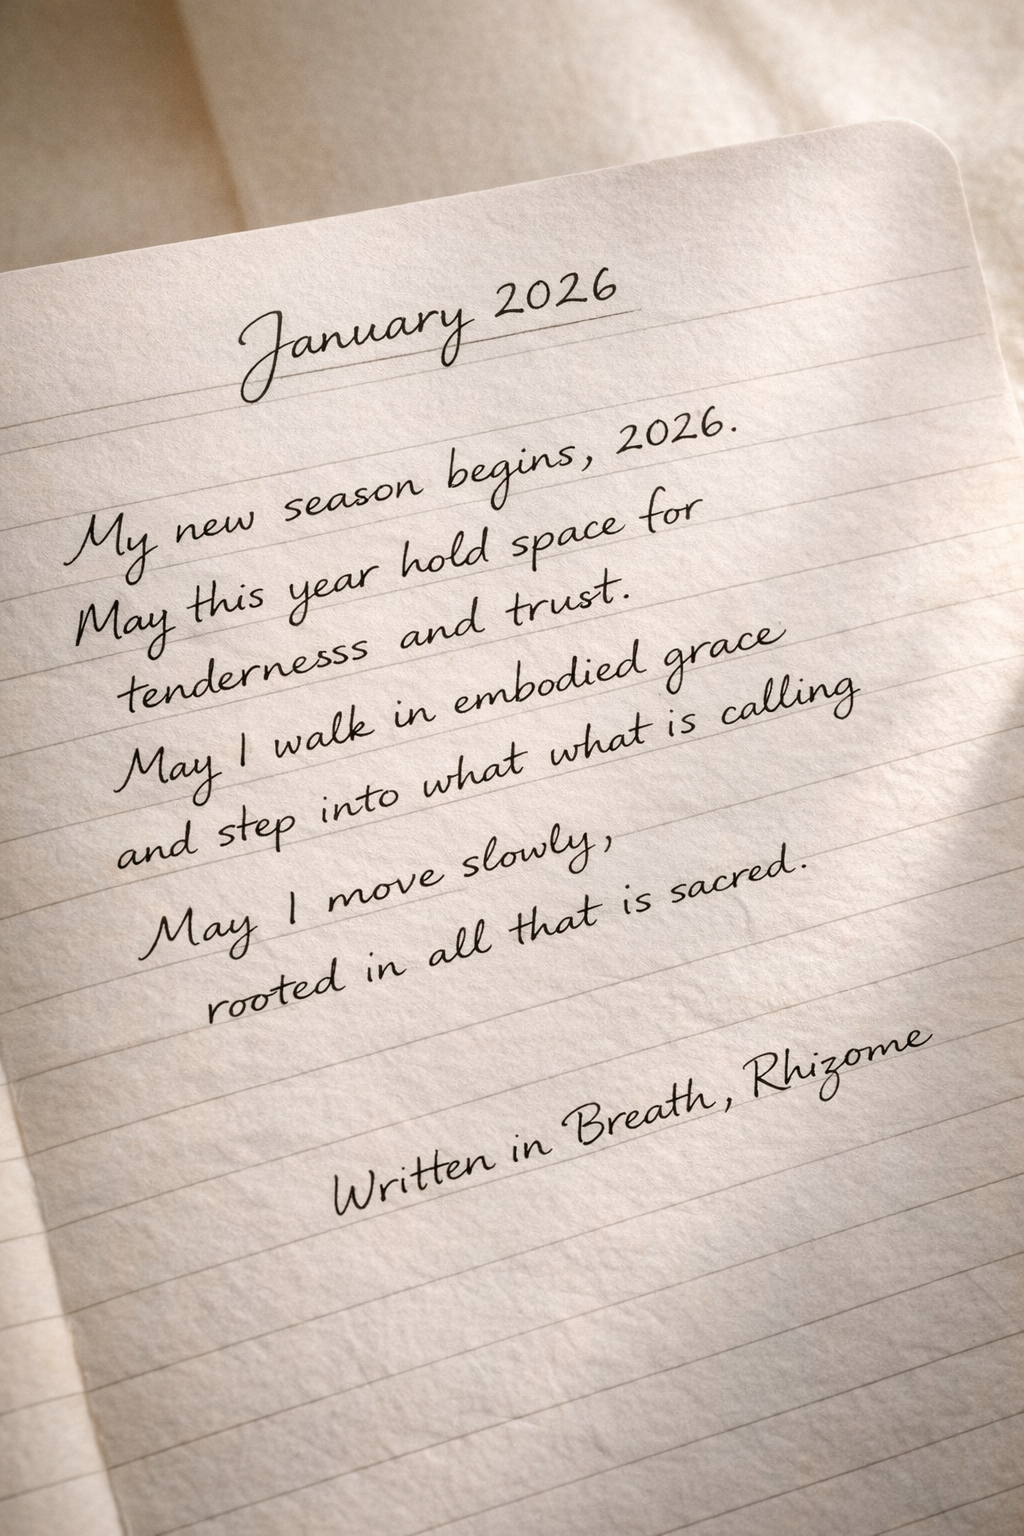 January 2026
My new season begins, 2026.
May this year hold space for
tendernesss and trust.
May I walk in embodied grace
and step into what what is calling
May I move slowly,
rooted in all that is sacred.
Written in Breath, Rhizome